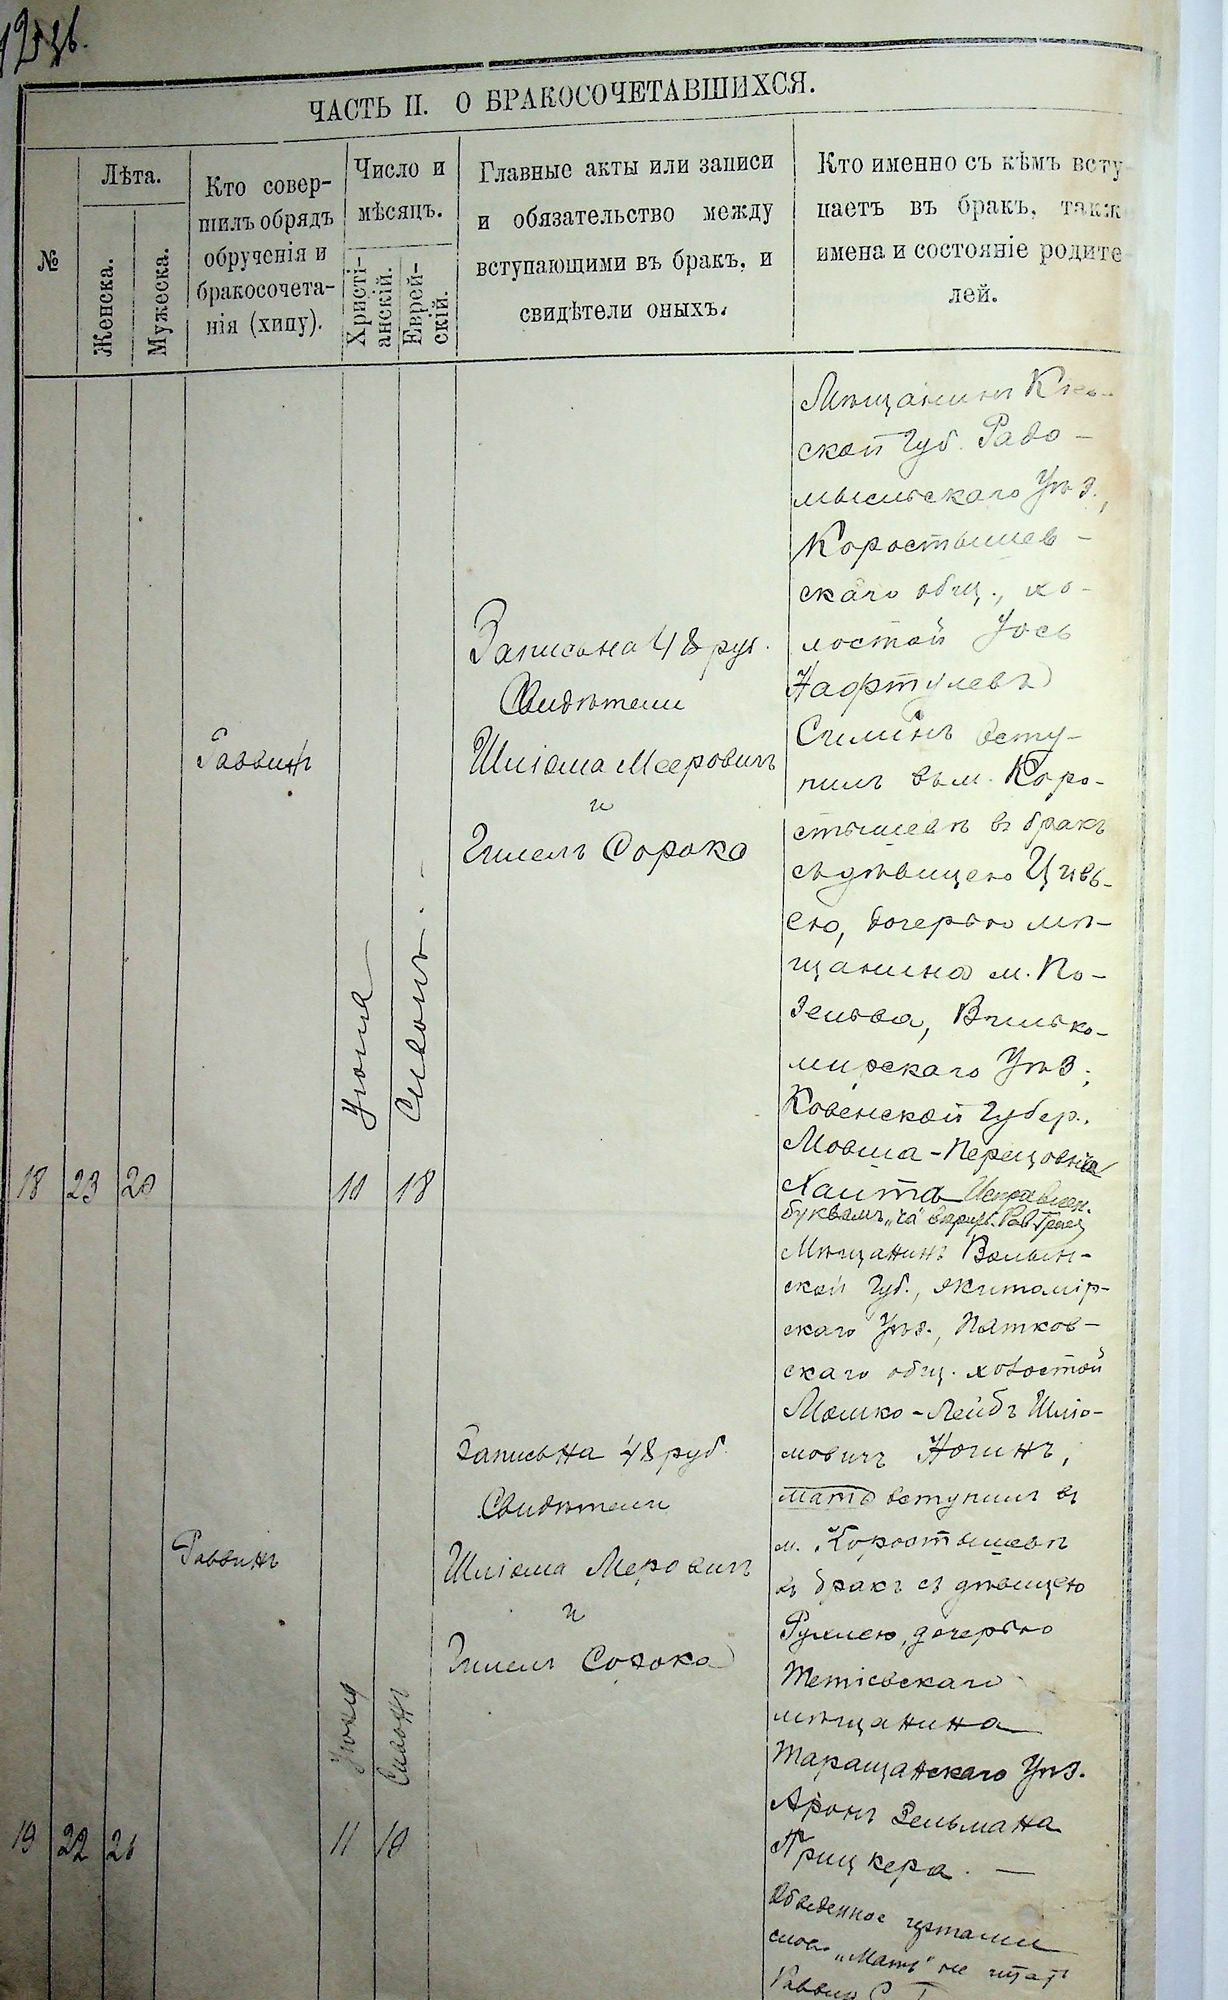 ЧАСТЬ II. О БРАКОСОЧЕТАВШИХСЯ.
№
Лѣта.
Женска.
Мужеска.
Кто совер-
шилъ обрядъ
обрученія и
бракосочета-
нія (хипу).
Число и
мѣсяцъ.
Христі-
анскій.
Еврей-
скій.
Главные акты или записи
и обязательство между
вступающими въ бракъ, и
свидѣтели оныхъ.
Кто именно съ кѣмъ всту
паетъ въ бракъ, такж
имена и состояніе родите
лей.
18
23
20
Раввинъ
Іюня
10
Сивонъ
18
Запись на 48 руб.
Свидѣтели
Шліома Мееровичъ
и
Гилелъ Сорока
Мѣщанинъ Кіев-
ской Губ. Радо-
мысльскаго Уѣз.,
Коростышев-
скаго общ., хо-
лостой Іось
Нафтулевъ
всту-
пилъ въ м. Коро-
стышевѣ въ бракъ
съ дѣвицею Цивь-
ею, дочерью мѣ-
щанина м. По-
зельва, Вилько-
мирскаго Уѣз.,
Ковенской Губер.
Мовша-Перецовна
Хаита
буквамъ "на"
19
22
Раввинъ
Іюня
11
Сивонъ
Запись на 48 руб.
Свидѣтели
Шліома Меровичъ
и
Гилелъ Сорока
Мѣщанинъ Волын-
ской Губ., Житомір-
скаго Уѣз., Пятков-
скаго общ. холостой
Мошко-Лейбъ Шліо-
мовичъ Ногинъ,
мать вступилъ въ
м. Коростышевѣ
въ бракъ съ дѣвицею
Рухлею, дочерью
Тетіевскаго
мѣщанина
Таращанскаго Уѣз.
Аронъ Зельмана
Прицкера. —
Обведенное чертами
слово "Мать" не читать
Раввинъ